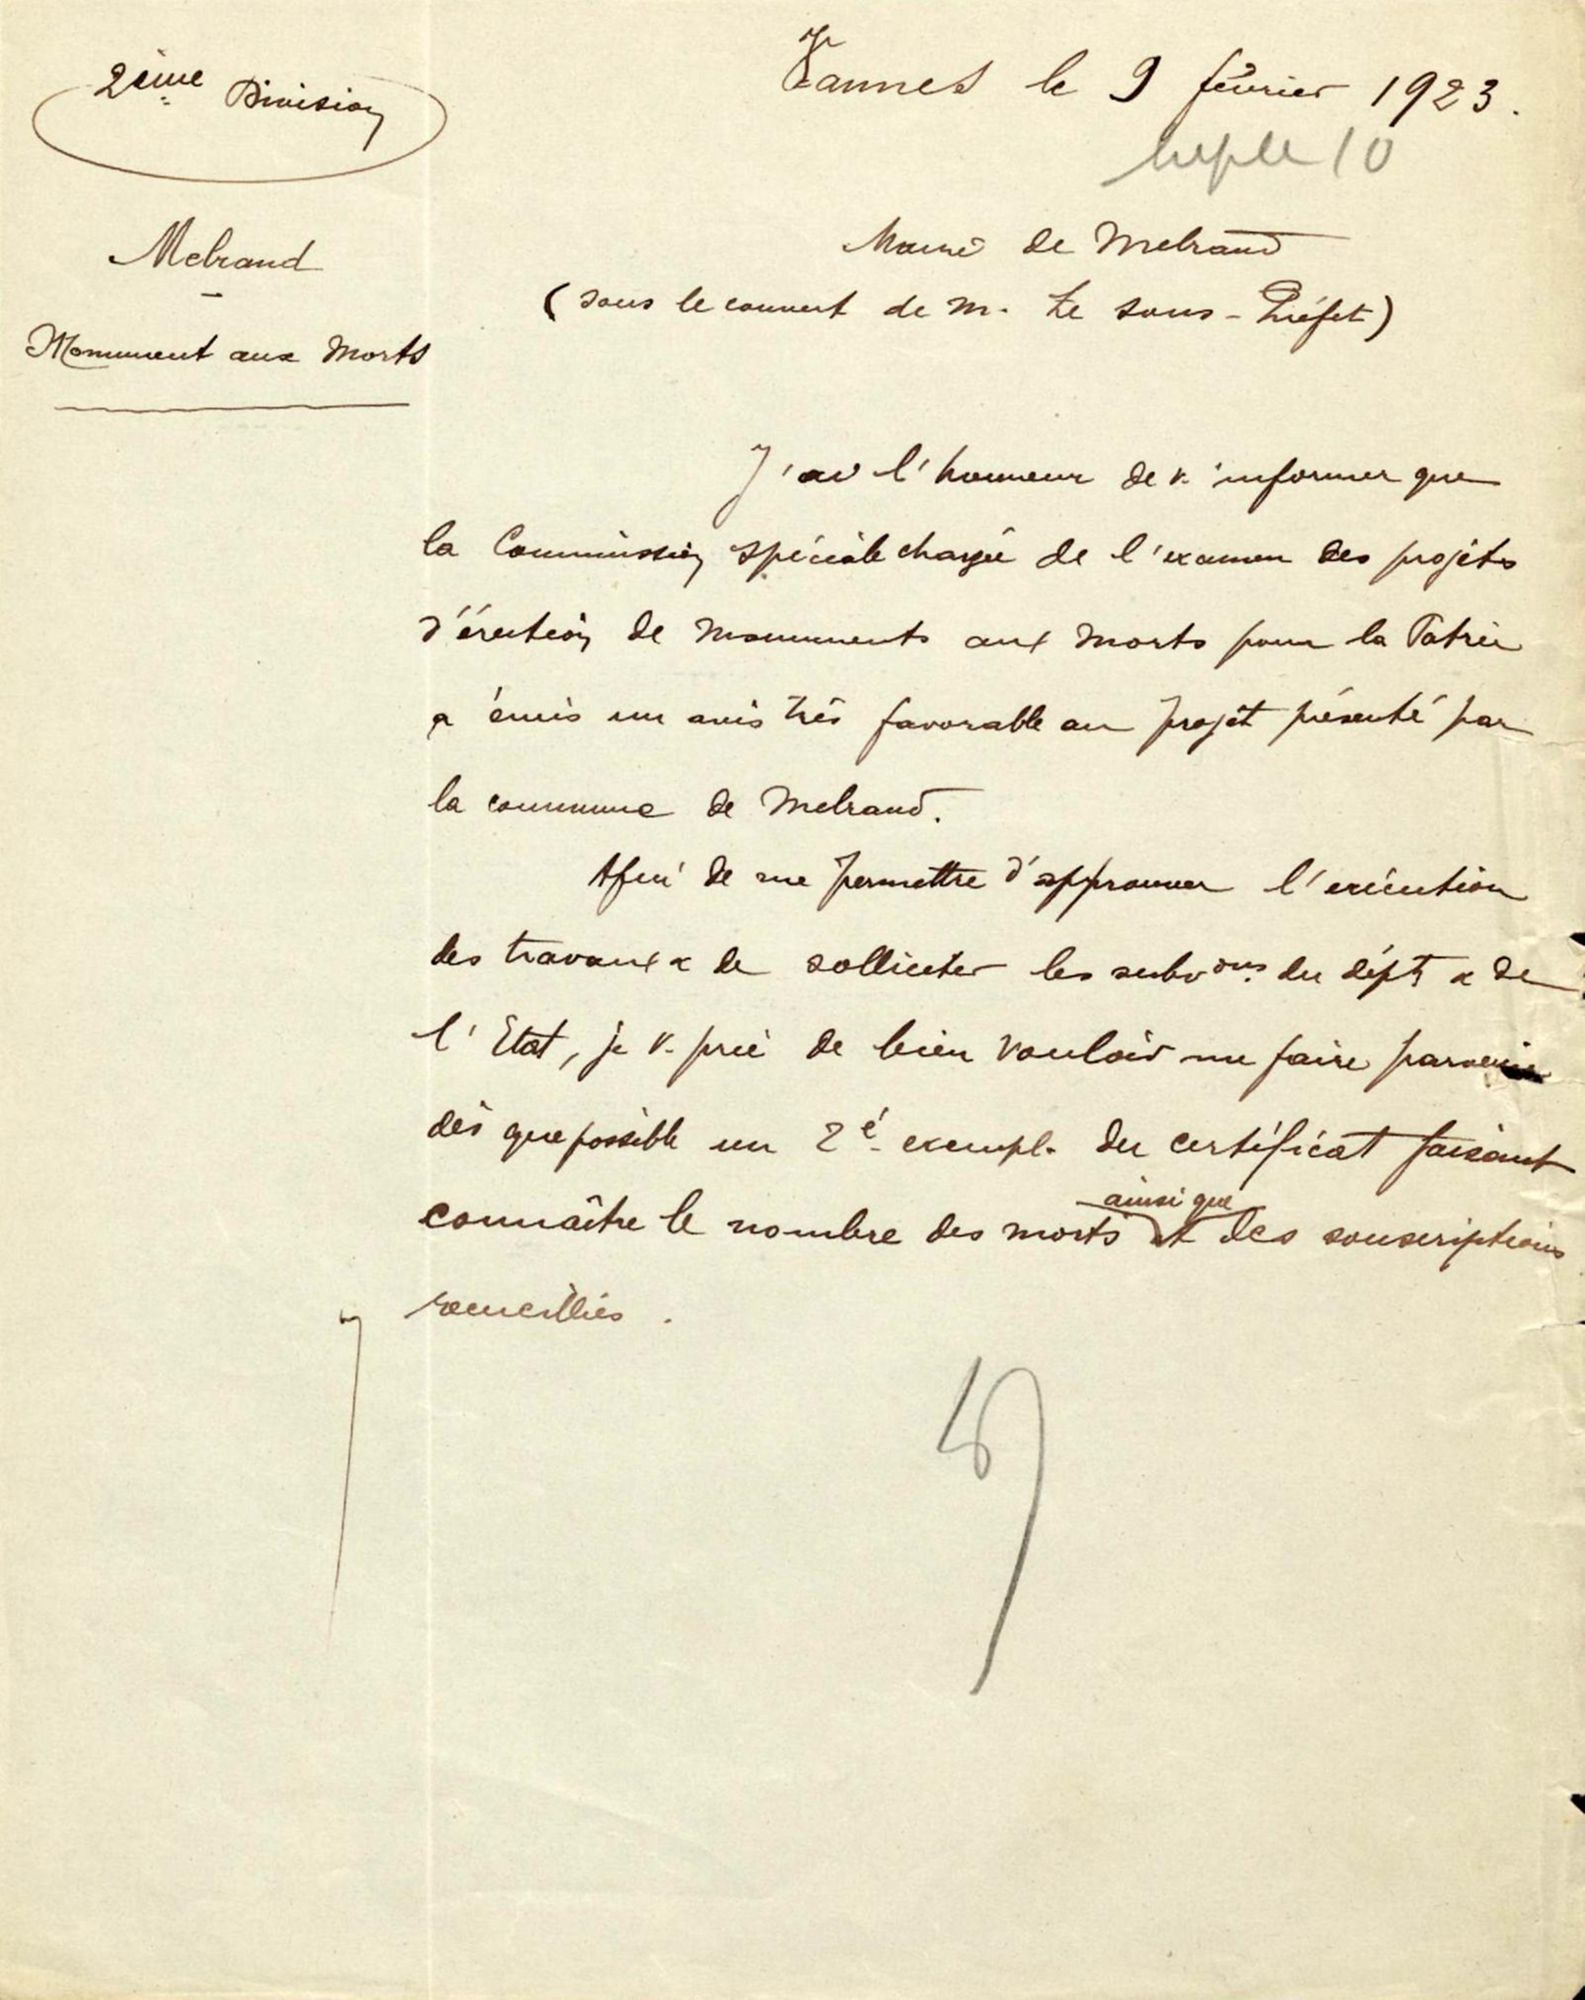 2ème Division
Vannes le 9 février 1923.
10
Melrand
Maire de Melrand
(sous le couvert de M. Le Sous-Préfet)
Monument aux Morts
J'ai l'honneur de v. informer que
la Commission spéciale chargée de l'examen des projets
d'érection de monuments aux morts pour la Patrie
a émis un avis très favorable au projet présenté par
la commune de Melrand.
Afin de me permettre d'approuver l'exécution
des travaux & de solliciter les subvons. du dépt & de
l'Etat, je v. prie de bien vouloir me faire parvenir
dès que possible un 2e exempl. du certificat faisant
ainsi que
connaître le nombre des morts et des souscriptions
recueillies.